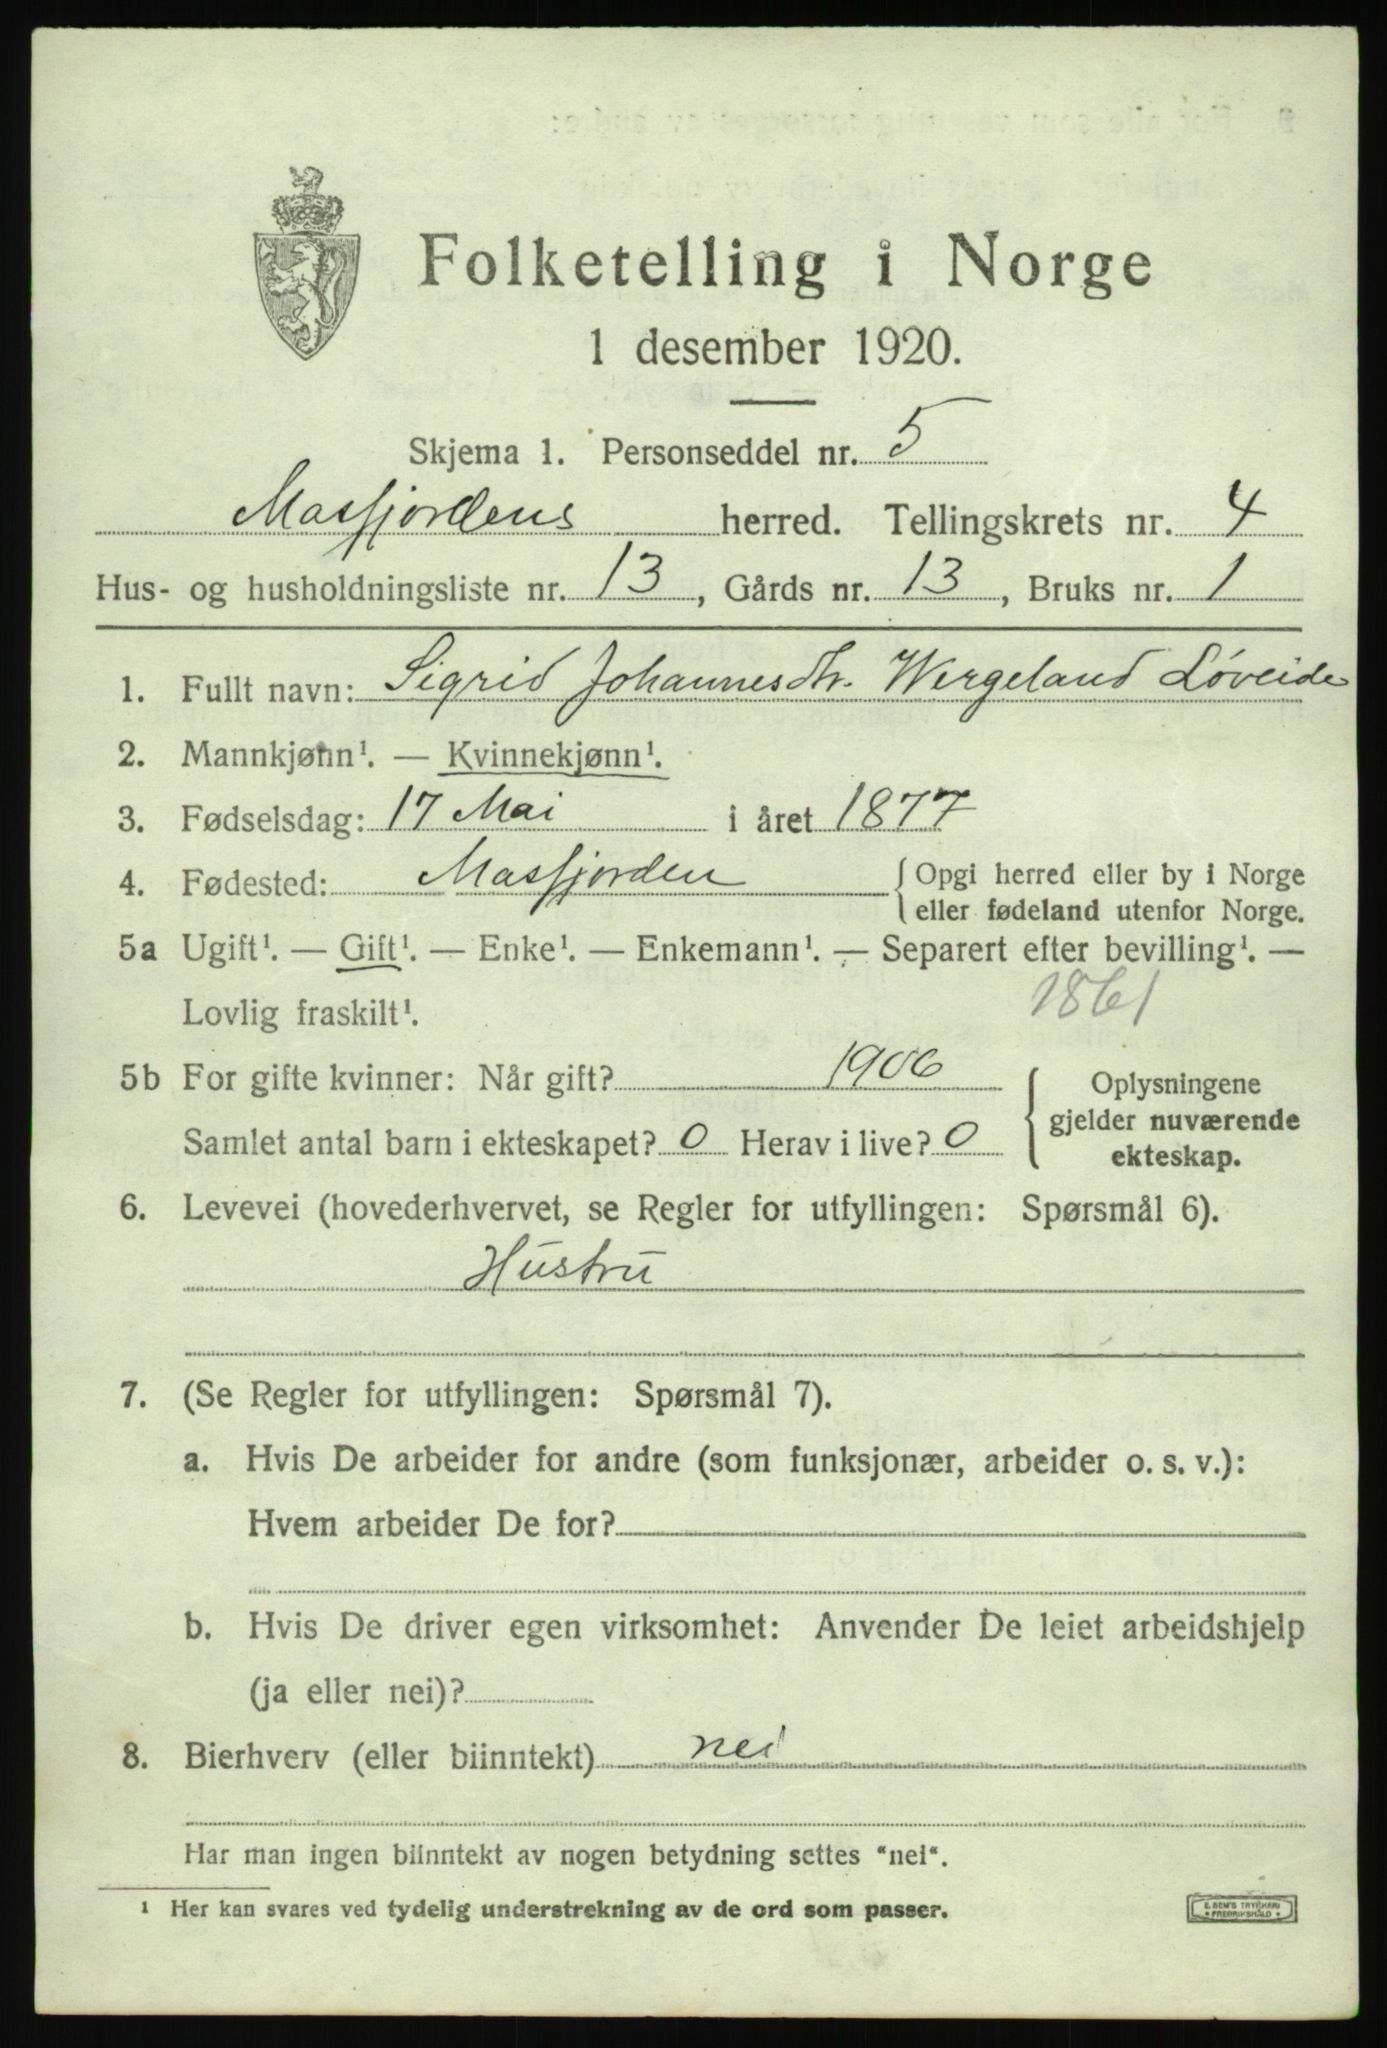 Folketelling i Norge
1 desember 1920.
Skjema 1. Personseddel nr. 5
Masfjordens herred. Tellingskrets nr. 4
Hus- og husholdningsliste nr. 13, Gårds nr. 13, Bruks nr. 1
1. Fullt navn: Sigrid Johannesdtr. Wergeland Løveide
2. Mannkjønn¹. — Kvinnekjønn¹.
3. Fødselsdag: 17 Mai i året 1877
4. Fødested: Masfjorden { Opgi herred eller by i Norge
eller fødeland utenfor Norge.
5a Ugift¹. — Gift¹. — Enke¹. — Enkemann¹. — Separert efter bevilling¹. —
Lovlig fraskilt¹. 1861
5b For gifte kvinner: Når gift? 1906
Samlet antal barn i ekteskapet? 0 Herav i live? 0
{ Oplysningene
gjelder nuværende
ekteskap.
6. Levevei (hovederhvervet, se Regler for utfyllingen: Spørsmål 6).
Hustru
7. (Se Regler for utfyllingen: Spørsmål 7).
a. Hvis De arbeider for andre (som funksjonær, arbeider o. s. v.):
Hvem arbeider De for?
b. Hvis De driver egen virksomhet: Anvender De leiet arbeidshjelp
(ja eller nei)?
8. Bierhverv (eller biinntekt) nei
Har man ingen biinntekt av nogen betydning settes "nei".
¹ Her kan svares ved tydelig understrekning av de ord som passer.
E. SEM'S TRYKKERI
FREDRIKSHALD